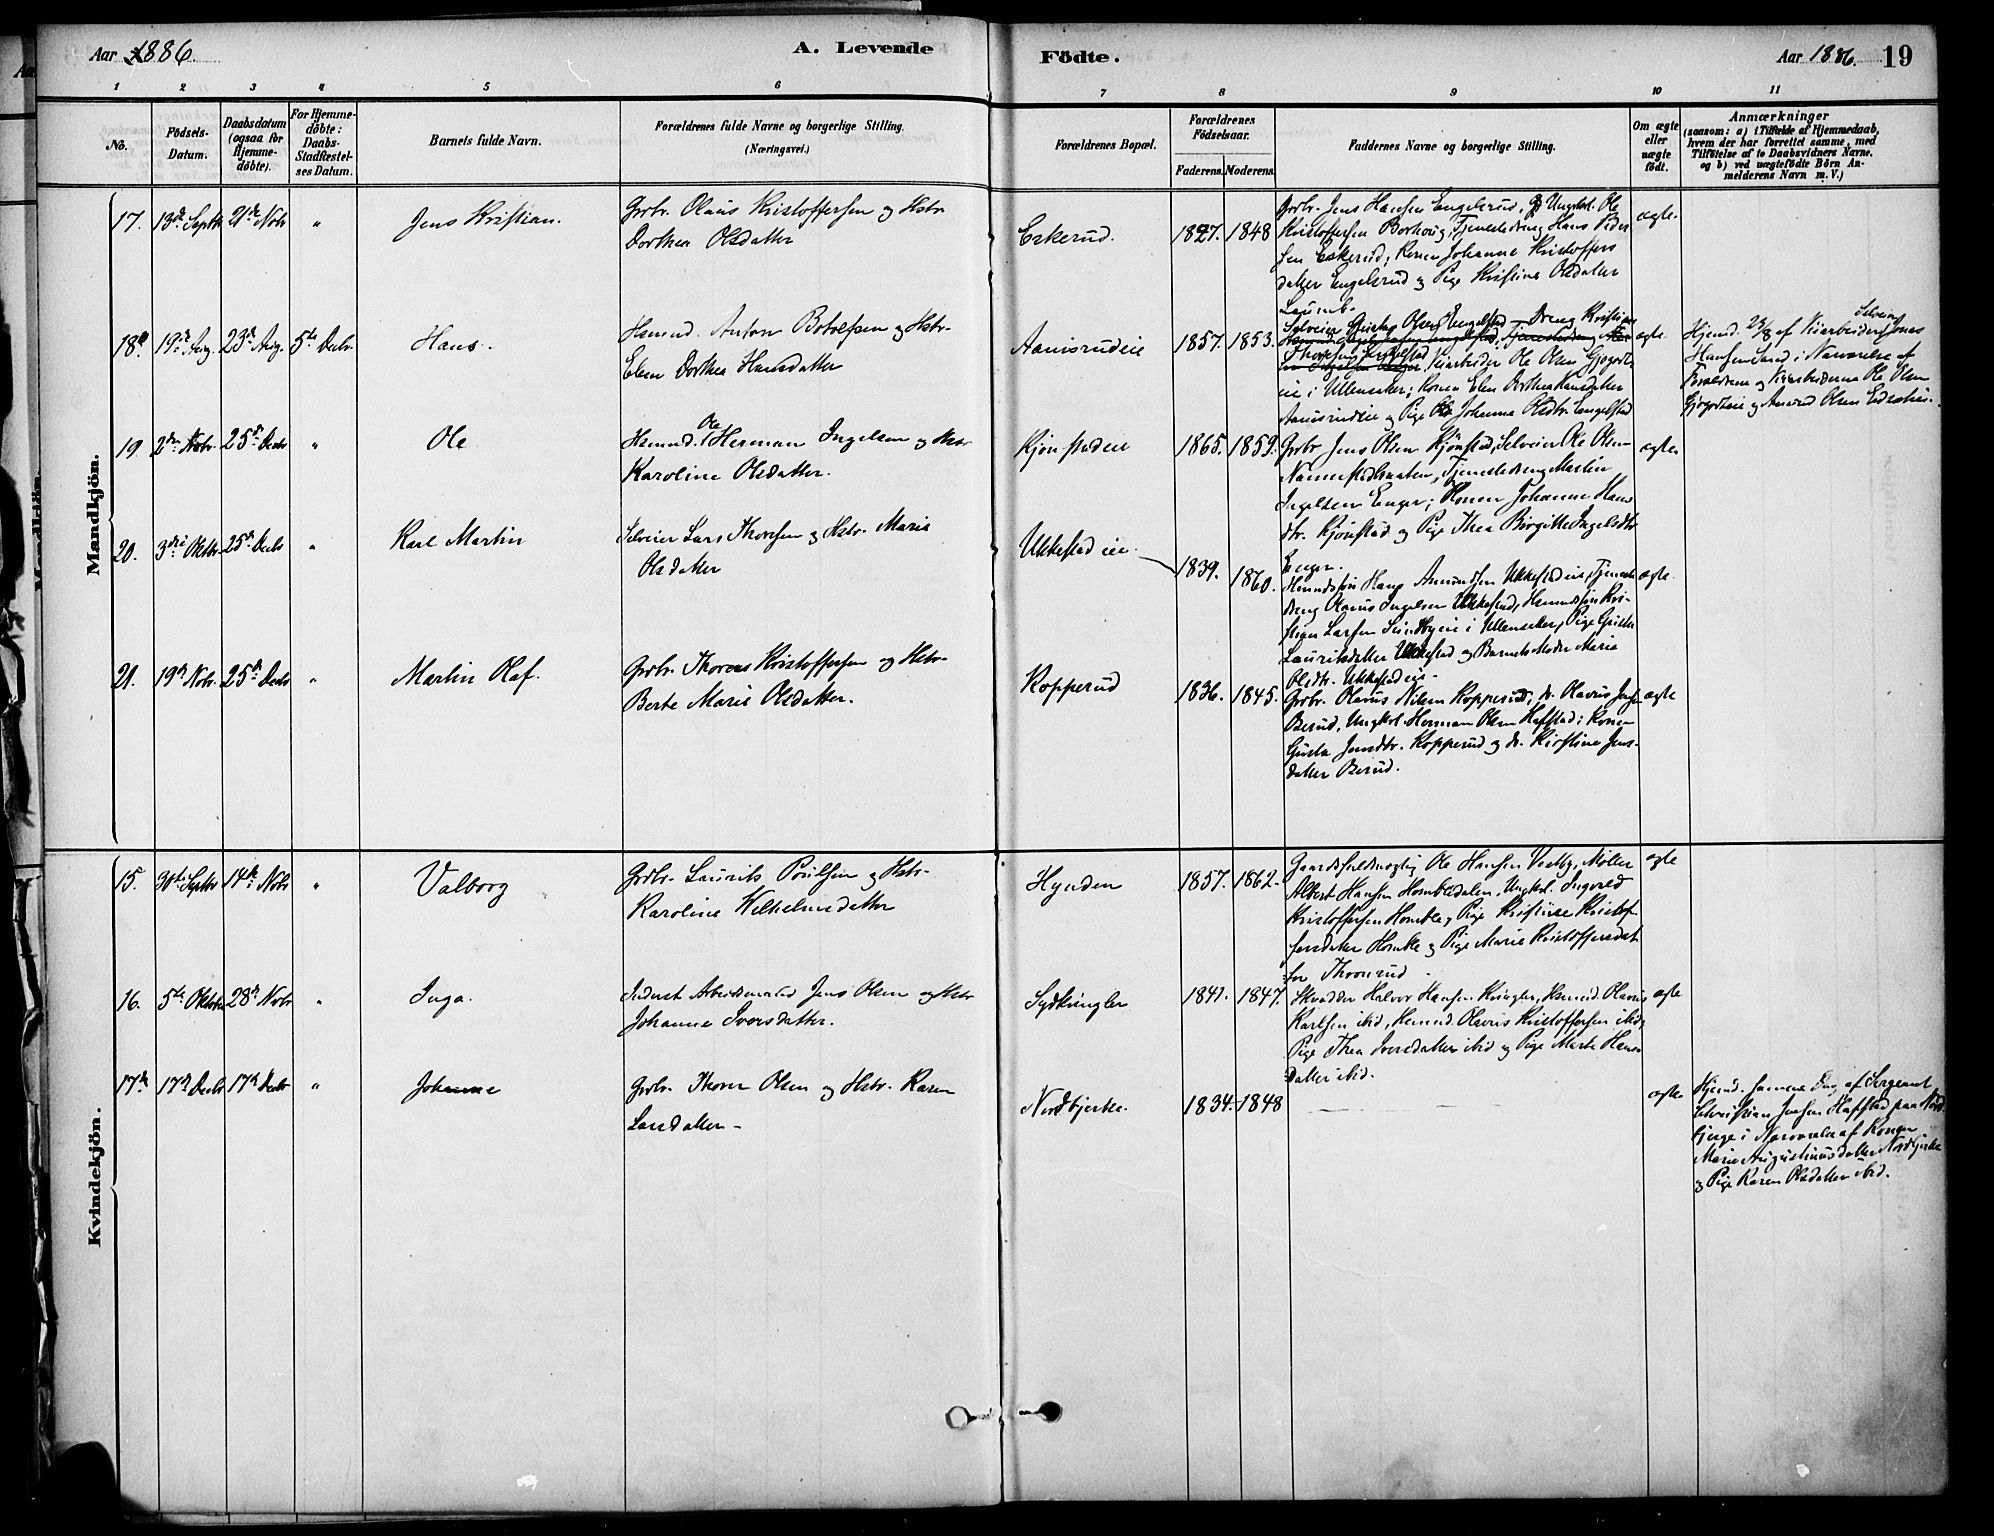 Aar 1886.
A. Levende
Födte.
Aar 1886.
19
1 2 3 4 5 6 7 8 9 10 11
No.
Födsels-
Datum.
Daabsdatum
(ogsaa for
Hjemme-
döbte).
For Hjemme-
döbte:
Daabs-
Stadfæstel-
ses Datum.
Barnets fulde Navn.
Forældrenes fulde Navne og borgerlige Stilling.
(Næringsvei.)
Forældrenes Bopæl.
Forældrenes
Födselsaar.
Faderens. Moderens.
Faddernes Navne og borgerlige Stilling.
Om ægte
eller
uægte
födt.
Anmærkninger
(saasom: a) i Tilfælde af Hjemmedaab,
hvem der har forrettet samme, med
Tilföielse af to Daabsvidners Navne,
og b) ved uægtefödte Börn An-
melderens Navn m. V.)
Mandkjön.
17. 13de Septbr 21de Nobr " Jens Kristian.
Grdbr. Olaus Kristoffersen og Hstr
Dorthea Olsdatter
Eskerud. 1827. 1848
Grdbr. Jens Hansen Engelsrud, Ungkrl. Ole
Kristoffersen Borhoug, Tjenestedreng Hans Peder
sen Eskerud, Konen Johanne Kristoffers
datter Engelsrud og Pige Kristine Olsdatter
ægte.
18. 19de Aug. 23de Aug. 5te Decbr. Hans.
Hsmnd. Anton Botolfsen og Hstr.
Elen Dorthea Hansdatter
Aamsrudeie 1857. 1853.
Selveier Gustav Olsen Engelstad Dreng Kristian
Thoresen Engelstad, Veiarbeider Ole Olsen Gjogort
eie i Ullensaker; Konen Elen Dorthea Hansdatter
Aamsrudeie og Pige Johanne Olsdtr. Engelstad
ægte.
Hjemd. 23/8 af Veiarbeider Jonas
Hansen i Nærværelse af
Forældrene og Veiarbeiderne Ole Olsen
19. 2den Nobr. 25de Decbr " Ole
Hsmnd. Ole Herman Ingelsen og Hstr
Karoline Olsdatter.
Kjönstadeie 1865. 1859.
Grdbr Jens Olsen Kjönstad, Selveier Ole Olsen
Nannestadbraaten, Tjenestedreng Martin
Ingelsen Enger; Konen Johanne Hans
dtr. Kjönstad og Pige Thea Birgitte Ingelsdtr
Enger.
ægte
20. 3die Oktbr 25de Decbr " Karl Martin
Selveier Lars Thoresen og Hstr. Marie
Olsdatter
Ukkestadeie. 1839. 1860.
Hsmndssön Hans Amundsen Ukkestadeie, Tjeneste
dreng Olavus Ingelsen Ukkestad, Hsmndssön Kri-
stian Larsen Sundbyeie i Ullensaker, Pige
Lauritsdatter Ukkestad og Barnets Moder Marie
Olsdtr. Ukkestadeie.
ægte.
21. 19de Nobr. 25de Decbr " Martin Olaf.
Grdbr. Thorer Kristoffersen og Hstr.
Berte Marie Olsdatter.
Kopperud 1836. 1845.
Grdbr. Olavus Nilsen Kopperud, do. Olavus Jensen
Berud, Ungkrl. Herman Olsen Hafstad; Konen
Gusta Jensdtr. Kopperud og do. Kirstine Jens-
datter Berud.
ægte
Kvindekjön.
15. 30te Septbr 14de Nobr " Valborg
Grdbr. Laurits Poulsen og Hstr.
Karoline Wilhelmsdatter
Hynden 1857. 1862.
Gaardsfuldmægtig Ole Hansen Vestby, Møller
Albert Hansen Homledalen, Ungkrl. Ingvald
Kristoffersen Homle, Pige Kristine Kristof
fersdatter Homle og Pige Marie Kristoffersdat
ter Thronrud.
ægte
16. 5te Oktober 28de Nobr " Inga.
Inderst Arbeidsmand Jens Olsen og Hstr
Johanne Iversdatter.
Sydkringler 1841. 1847.
Skrædder Halvor Hansen Kringler, Hsmnd. Olavus
Karlsen ibid, Hsmnd. Olavus Kristoffersen ibid,
Pige Thea Iversdatter ibid og Pige Marte Hans
datter ibid.
ægte
17. 17de Decbr 17de Decbr " Johanne
Grdbr. Thorer Olsen og Hstr. Karen
Larsdatter.
Nordbjerke. 1834. 1848
ægte
Hjemd. samme Dag af Sergeant
Christian Jensen Hafstad paa Nord
bjerge i Nærværelse af Konen
Marie Augustinusdatter Nordbjerke
og Pige Karen Olsdatter ibid.